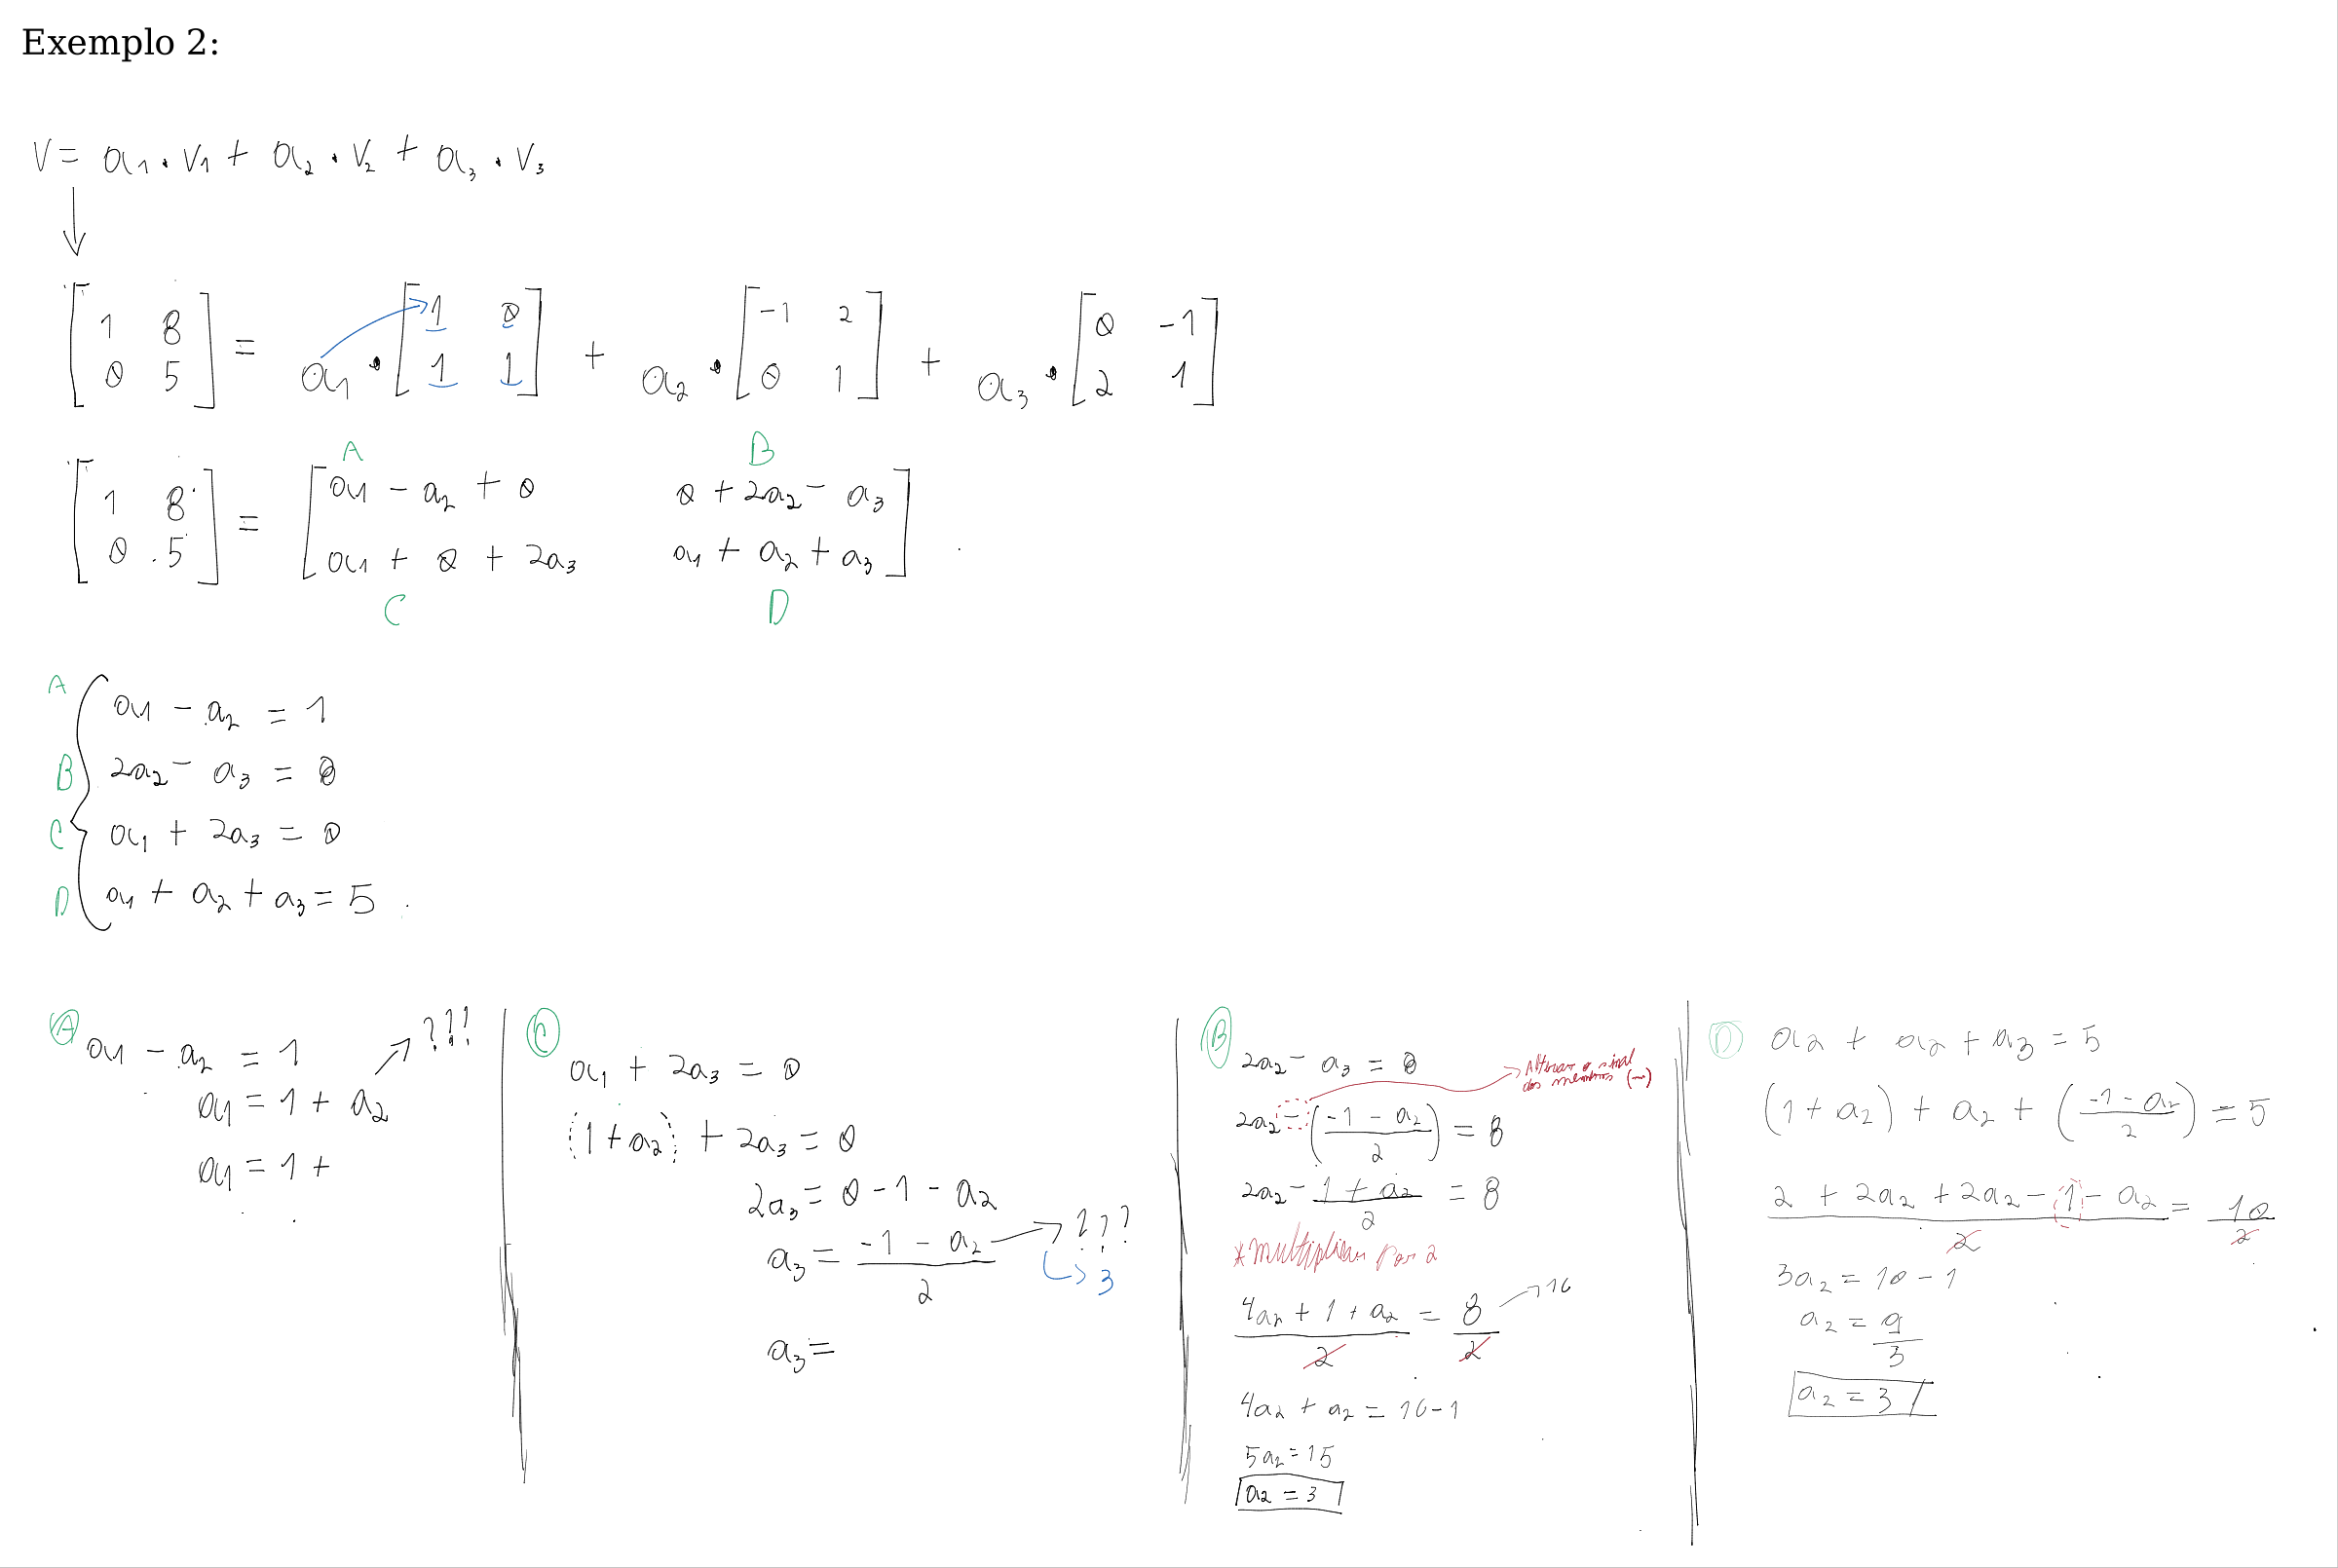 Exemplo 2:
V = a1 · v1 + a2 · v2 + a3 · v3
↓
[1 8; 0 5] = a1 · [1 0; 1 1] + a2 · [-1 2; 0 1] + a3 · [0 -1; 2 1]
A B
[1 8; 0 5] = [a1 - a2 + 0 0 + 2a2 - a3; a1 + 0 + 2a3 a1 + a2 + a3]
C D
A a1 - a2 = 1
B 2a2 - a3 = 8
C a1 + 2a3 = 0
D a1 + a2 + a3 = 5
A a1 - a2 = 1
a1 = 1 + a2 → ???
a1 = 1 +
C a1 + 2a3 = 0
(1 + a2) + 2a3 = 0
2a3 = 0 - 1 - a2
a3 = (-1 - a2)/2 → ???
↳ 3
a3 =
B 2a2 - a3 = 8
→ Alterar o sinal
dos membros (-)
2a2 - ((-1 - a2)/2) = 8
2a2 - (1 + a2)/2 = 8
*Multiplicar por 2
(4a2 + 1 + a2)/2 = 8/2 → 16
4a2 + a2 = 16 - 1
5a2 = 15
a2 = 3
D a2 + a2 + a3 = 5
(1 + a2) + a2 + ((-1 - a2)/2) = 5
(2 + 2a2 + 2a2 - 1 - a2)/2 = 10/2
3a2 = 10 - 1
a2 = 9/3
a2 = 3